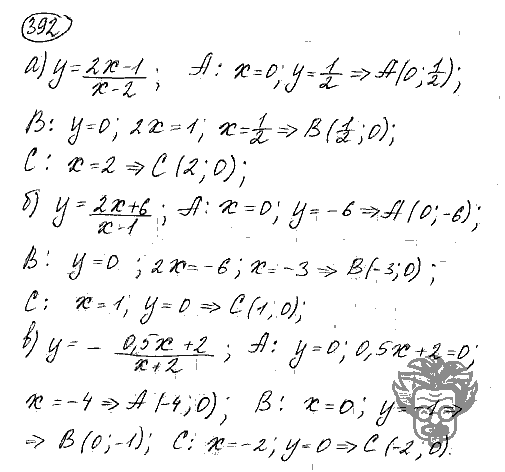 392
а) y = (2x-1)/(x-2); A: x=0; y=1/2 ⇒ A(0; 1/2);
B: y=0; 2x=1; x=1/2 ⇒ B(1/2; 0);
C: x=2 ⇒ C(2; 0);
б) y = (2x+6)/(x-1); A: x=0; y=-6 ⇒ A(0; -6);
B: y=0; 2x=-6; x=-3 ⇒ B(-3; 0);
C: x=1, y=0 ⇒ C(1; 0);
в) y = - (0,5x+2)/(x+2); A: y=0; 0,5x+2=0;
x=-4 ⇒ A(-4; 0); B: x=0; y=-1 ⇒
⇒ B(0; -1); C: x=-2; y=0 ⇒ C(-2; 0).